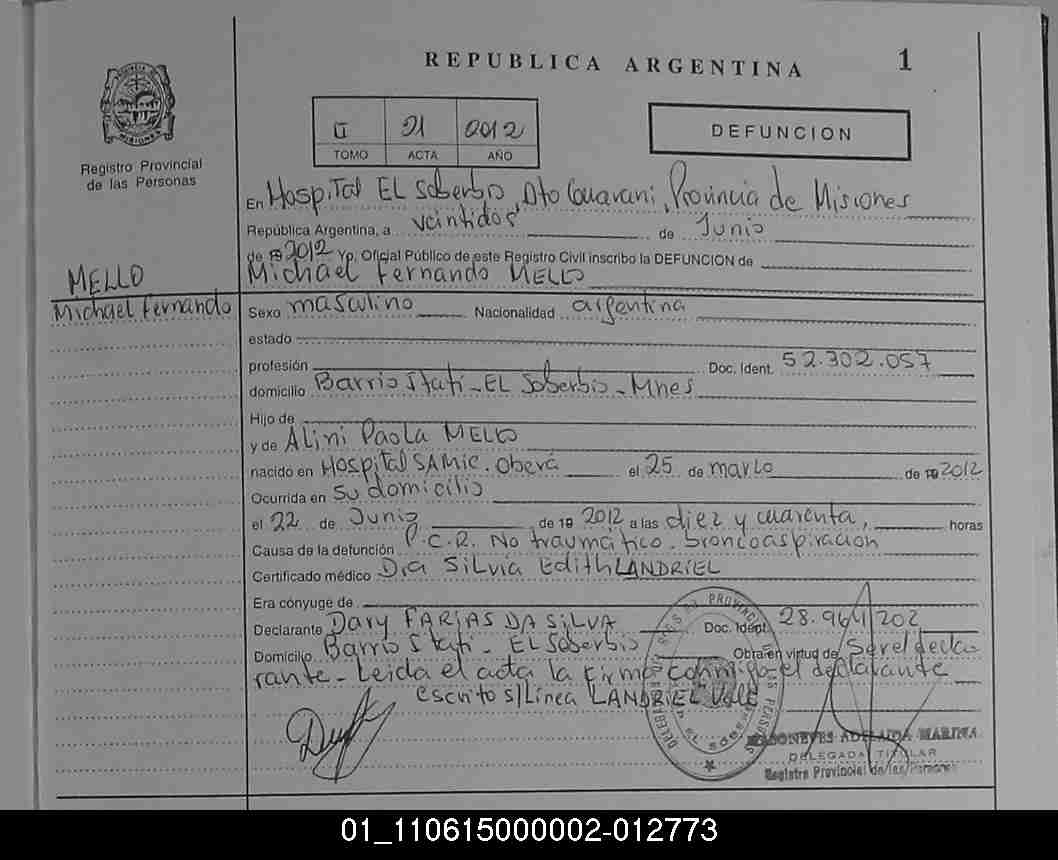 REPUBLICA ARGENTINA
1
PROVINCIA DE MISIONES
Registro Provincial
de las Personas
II 21 2012
TOMO ACTA AÑO
DEFUNCION
En Hospital EL Soberbio, Dto Guarani, Provincia de Misiones
República Argentina, a veintidos de Junio
de 19 2012 Yo, Oficial Público de este Registro Civil inscribo la DEFUNCION de
Michael Fernando MELLO
MELLO
Michael Fernando
Sexo masculino Nacionalidad argentina
estado
profesión Doc. Ident. 52.302.057
domicilio Barrio Itatí - EL Soberbio - Mnes
Hijo de
y de Alini Paola MELLO
nacido en Hospital SAMIC. Oberá el 25 de marzo de 19 2012
Ocurrida en su domicilio
el 22 de Junio de 19 2012 a las diez y cuarenta, horas
Causa de la defunción P.C.R. No traumático. broncoaspiracion
Certificado médico Dra Silvia Edith LANDRIEL
Era cónyuge de
Declarante Dary FARIAS DA SILVA Doc. Ident. 28.964.202
Domicilio Barrio Itati - EL Soberbio Obra en virtud de Ser el decla
rante - Leida el acta la firma conmigo el declarante
escrito s/Línea LANDRIEL Vale
ADELAIDA MARINA
DELEGADA TITULAR
Registro Provincial de las Personas
01_110615000002-012773